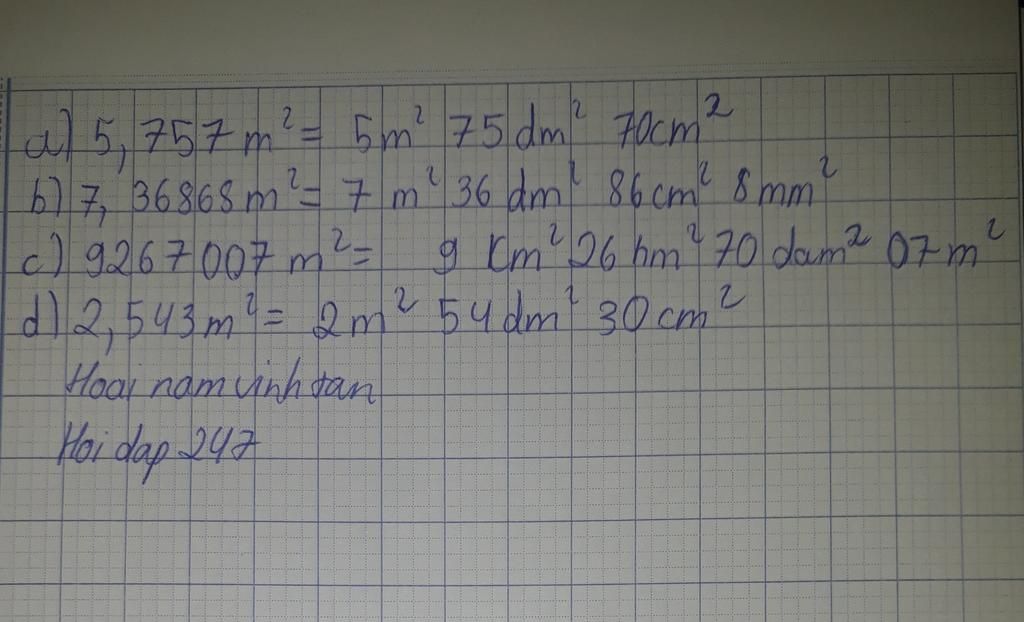 a) 5,757 m² = 5m² 75 dm² 70cm²
b) 7,36868m² = 7 m² 36 dm² 86cm² 8mm²
c) 9267007 m² = 9 Km² 26 hm² 70 dam² 07m²
d) 2,543m² = 2m² 54dm² 30cm²
Hoai nam vinh tan
Hoi dap 247